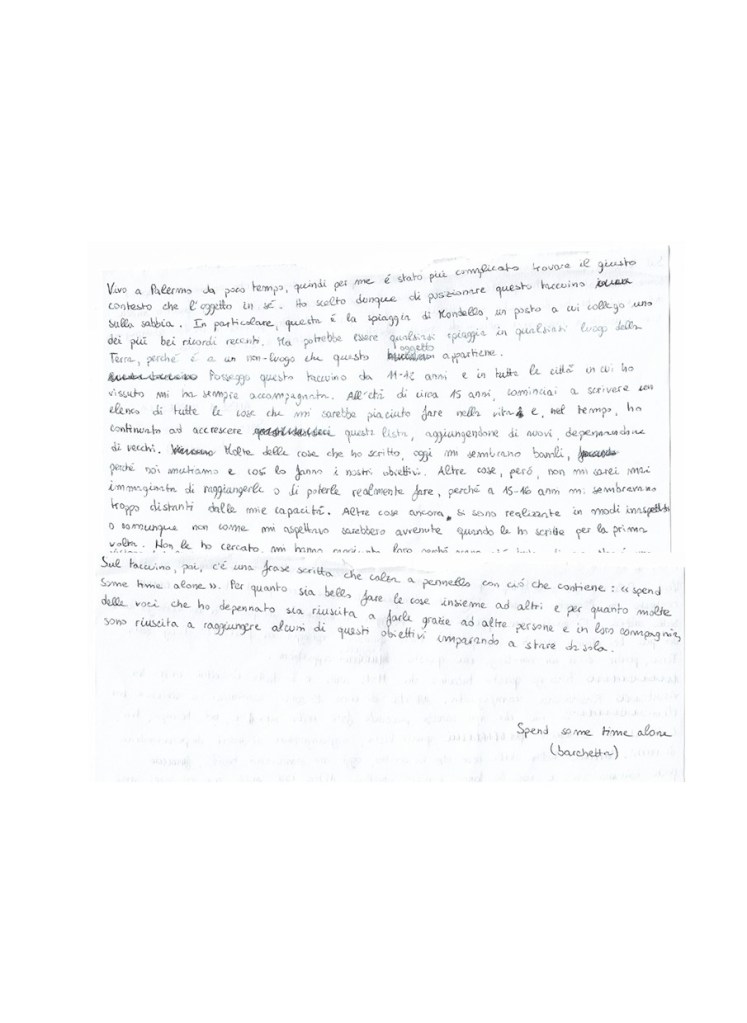 Vivo a Palermo da poco tempo, quindi per me é stato piú complicato trovare il giusto
contesto che l'oggetto in sé. Ho scelto dunque di posizionare questo taccuino
sulla sabbia. In particolare, questa é la spiaggia di Mondello, un posto a cui collego uno
dei più bei ricordi recenti. Ma potrebbe essere qualsiasi spiaggia in qualsiasi luogo della
Terra, perché é a un non-luogo che questo oggetto appartiene.
Posseggo questo taccuino da 11-12 anni e in tutte le città in cui ho
vissuto mi ha sempre accompagnata. All'età di circa 15 anni, cominciai a scrivere un
elenco di tutte le cose che mi sarebbe piaciuto fare nella vita e, nel tempo, ho
continuato ad accrescere questa lista, aggiungendone di nuovi, depennandone
di vecchi. Molte delle cose che ho scritto, oggi mi sembrano banali,
perché noi mutiamo e così lo fanno i nostri obiettivi. Altre cose, peró, non mi sarei mai
immaginata di raggiungerle o di poterle realmente fare, perché a 15-16 anni mi sembravano
troppo distanti dalle mie capacitá. Altre cose ancora, si sono realizzate in modi inaspettati
o comunque non come mi aspettavo sarebbero avvenute quando le ho scritte per la prima
volta. Non le ho cercate, mi hanno
Sul taccuino, poi, c'é una frase scritta che calza a pennello con ció che contiene: «spend
some time alone». Per quanto sia bello fare le cose insieme ad altri e per quanto molte
delle voci che ho depennato sia riuscita a farle grazie ad altre persone e in loro compagnia,
sono riuscita a raggiungere alcuni di questi obiettivi imparando a stare da sola.
Spend some time alone
(barchetta)